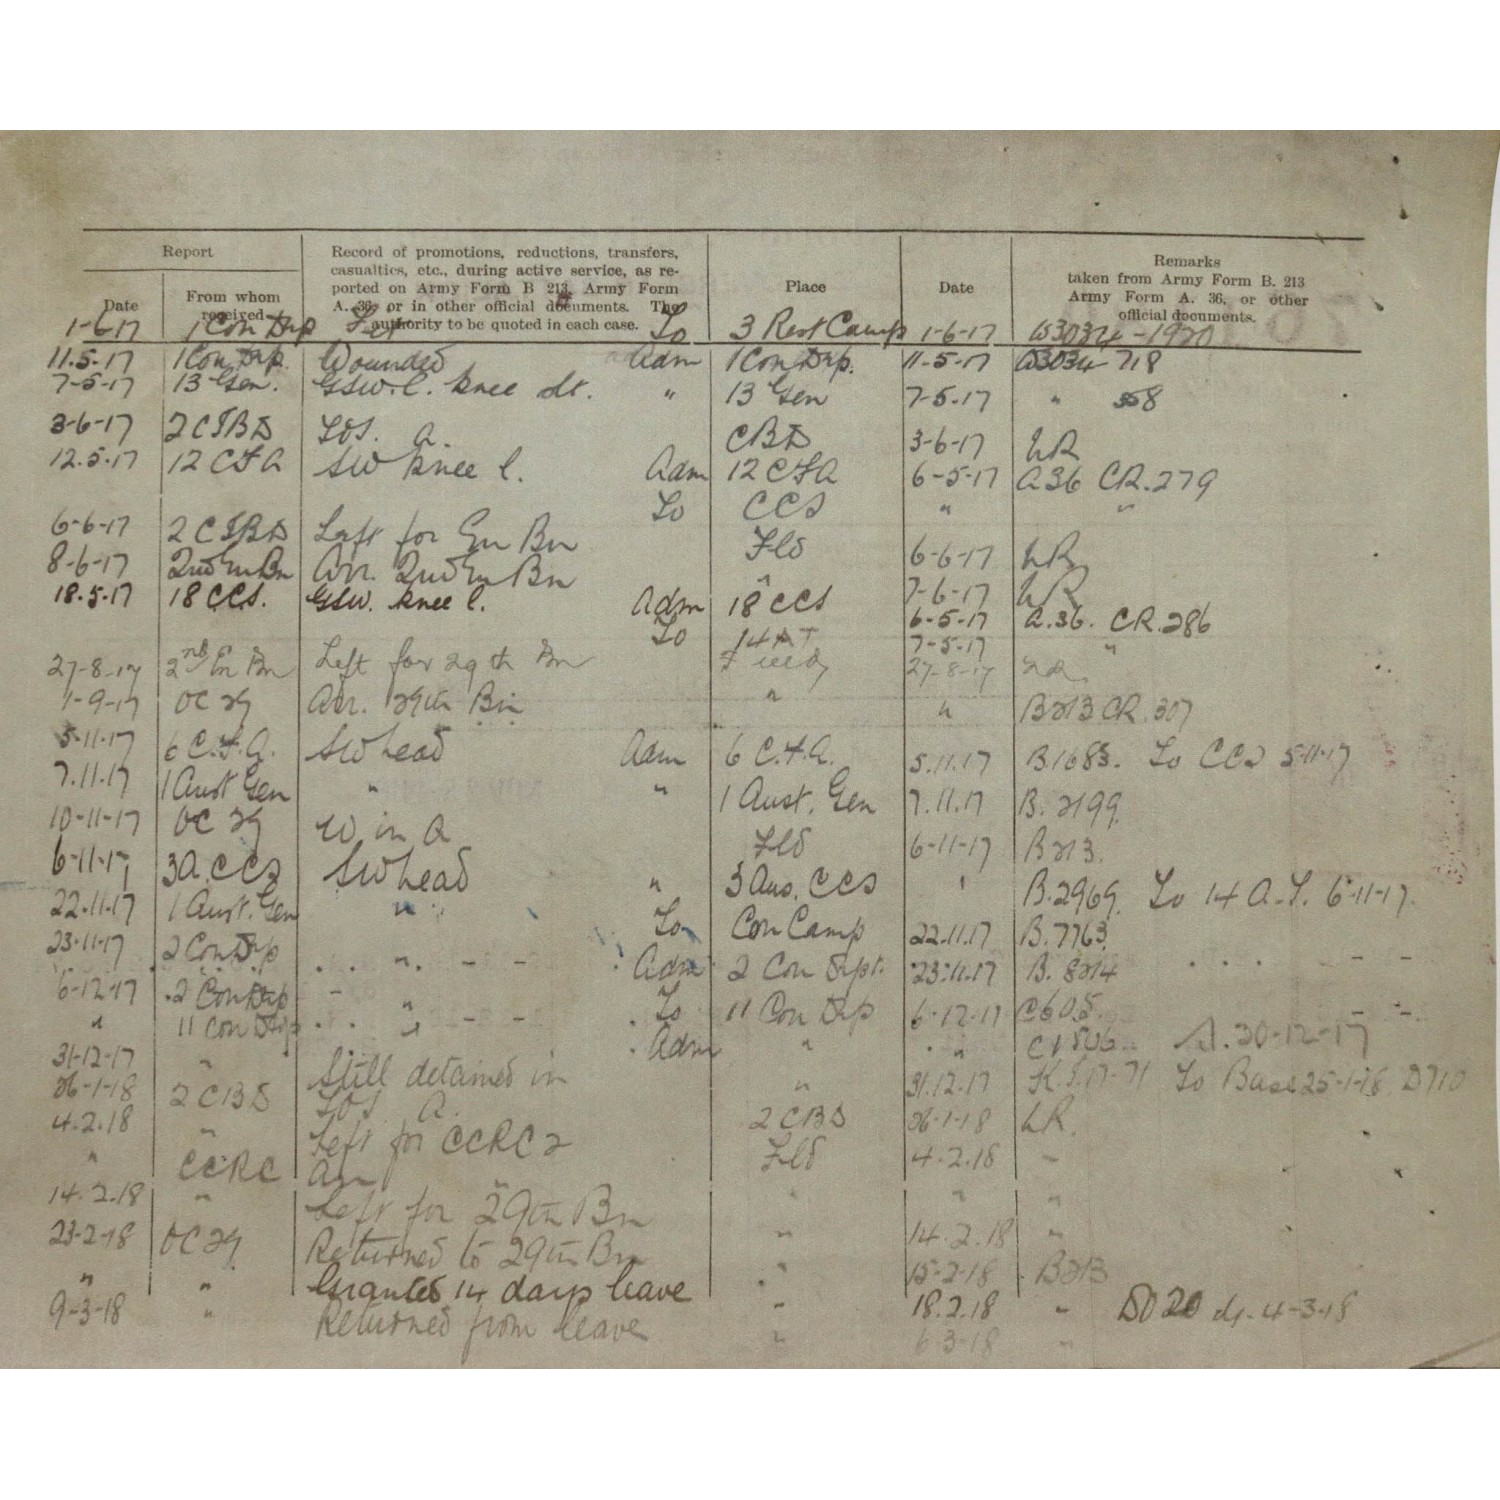 Report
Record of promotions, reductions, transfers, casualties, etc., during active service, as reported on Army Form B 213, Army Form A. 36, or in other official documents. The authority to be quoted in each case.
Place
Date
Remarks
taken from Army Form B. 213
Army Form A. 36, or other
official documents.
Date
From whom received
1-6-17 1 Con Dep To 3 Rest Camp 1-6-17 W3034-1920
11.5.17 1 Con Dep. Wounded Adm 1 Con Dep. 11-5-17 W3034 718
7-5-17 13 Gen. GSW. l. knee " 13 Gen 7-5-17 " 558
3-6-17 2 CIBD TOS. a. CBD 3-6-17 LR
12.5.17 12 CFA SW knee l. Adm 12 CFA 6-5-17 A36 CR.279
To CCS " "
6-6-17 2 CIBD Left for En Bn Fld 6-6-17 LR
8-6-17 2nd En Bn Arr. 2nd En Bn " 7-6-17 LR
18.5.17 18 CCS. GSW. knee l. Adm 18 CCS 6-5-17 A.36. CR.286
To 14 AT 7-5-17 "
27-8-17 2nd En Bn Left for 29th Bn Field 27-8-17
1-9-17 OC 29 Arr. 29th Bn " " B213 CR.307
5-11-17 6 C.F.A. SW head Adm 6 C.F.A. 5.11.17 B.1683. To CCS 5-11-17
7.11.17 1 Aust Gen " " 1 Aust. Gen 7.11.17 B.2199.
10-11-17 OC 29 W. in A Fld 6-11-17 B213.
6-11-17 3A.CCS SW head " 3 Aus. CCS " B.2969. To 14 A.T. 6-11-17.
22.11.17 1 Aust. Gen " To Con Camp 22.11.17 B.7763.
23-11-17 2 Con Dep " Adm 2 Con Dept. 23.11.17 B. 8214
6-12-17 2 Con Dep " To 11 Con Dep 6-12-17 C605.
" 11 Con Dep " Adm " " 30-12-17
31-12-17 " Still detained in " 31.12.17 To Base 25-1-18. D710
26-1-18 2 CBD TOS A. 2 CBD 26-1-18 LR.
4.2.18 " Left for CCRC 2 Fld 4.2.18 "
" CCRC Arr " " " "
14.2.18 " Left for 29th Bn " 14.2.18 "
23-2-18 OC 29 Returned to 29th Bn " 15-2-18 B213
" " Granted 14 days leave " 18.2.18 " DO 20 d/. 4-3-18
9-3-18 " Returned from leave " 6-3-18 "